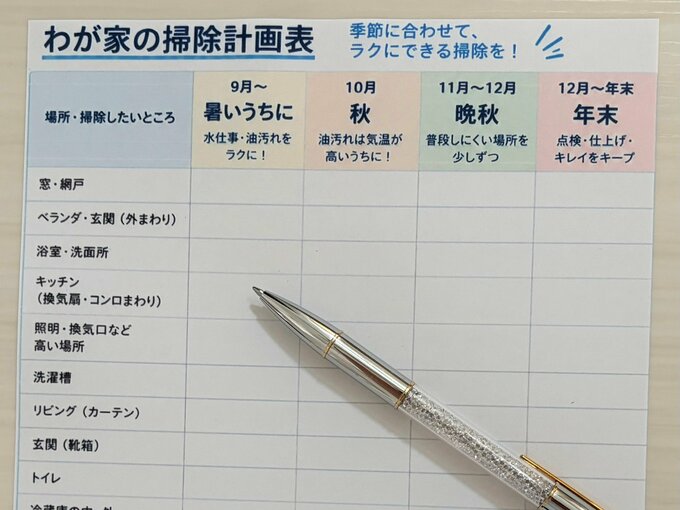 わが家の掃除計画表
季節に合わせて、
ラクにできる掃除を！
場所・掃除したいところ
9月～
暑いうちに
水仕事・油汚れを
ラクに！
10月
秋
油汚れは気温が
高いうちに！
11月～12月
晩秋
普段しにくい場所を
少しずつ
12月～年末
年末
点検・仕上げ・
キレイをキープ
窓・網戸
ベランダ・玄関（外まわり）
浴室・洗面所
キッチン
（換気扇・コンロまわり）
照明・換気口など
高い場所
洗濯槽
リビング（カーテン）
玄関（靴箱）
トイレ
冷蔵庫の中・外